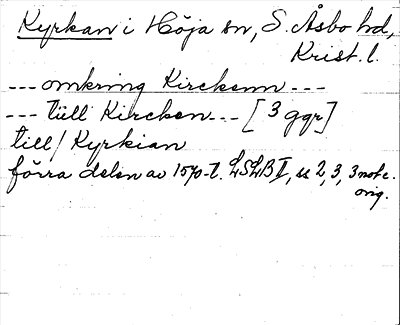 Kyrkan i Höja sn, S. Åsbo hd,
Krist. l.
--- omkring Kirckenn ---
--- tüll Kircken.-- [3 ggr]
till/ Kyrkian
förra delen av 1570-t. LSLB II, ss 2, 3, 3 note.
orig.